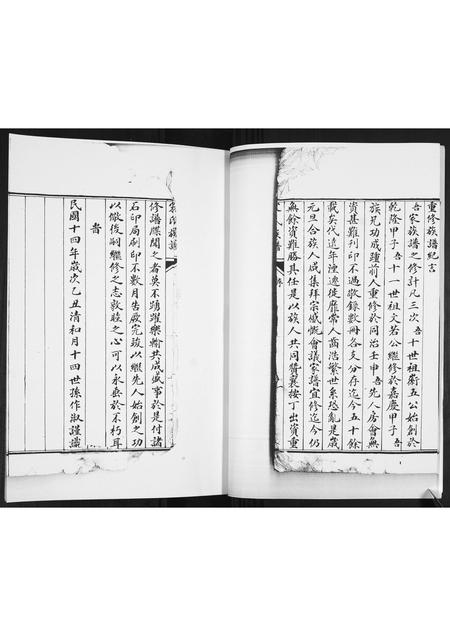 重修族譜紀言
吾家族譜之修計凡三次吾十世祖衛五公始創於
乾隆甲子吾十一世祖文若公繼修於嘉慶甲子吾
族兄功成踵前人重修於同治壬申吾先人房會無
資甚難刊印不過敬錄數冊各支分存迄今五十餘
載矣代遠年湮遷徙靡常人齒浩繁世系恐亂是歲
元旦合族人咸集拜宗感慨會議家譜宜修迄今仍
無餘資難勝其任是以族人共同贊襄按丁出資重
修譜牒聞之者莫不踴躍樂輸共成盛事於是付諸
石印局刷印不數月告厥完竣以繼先人始創之功
以儆後嗣繼修之志敦睦之心可以永垂於不朽耳
耆
民國十四年歲次乙丑清和月十四世孫作淑謹識